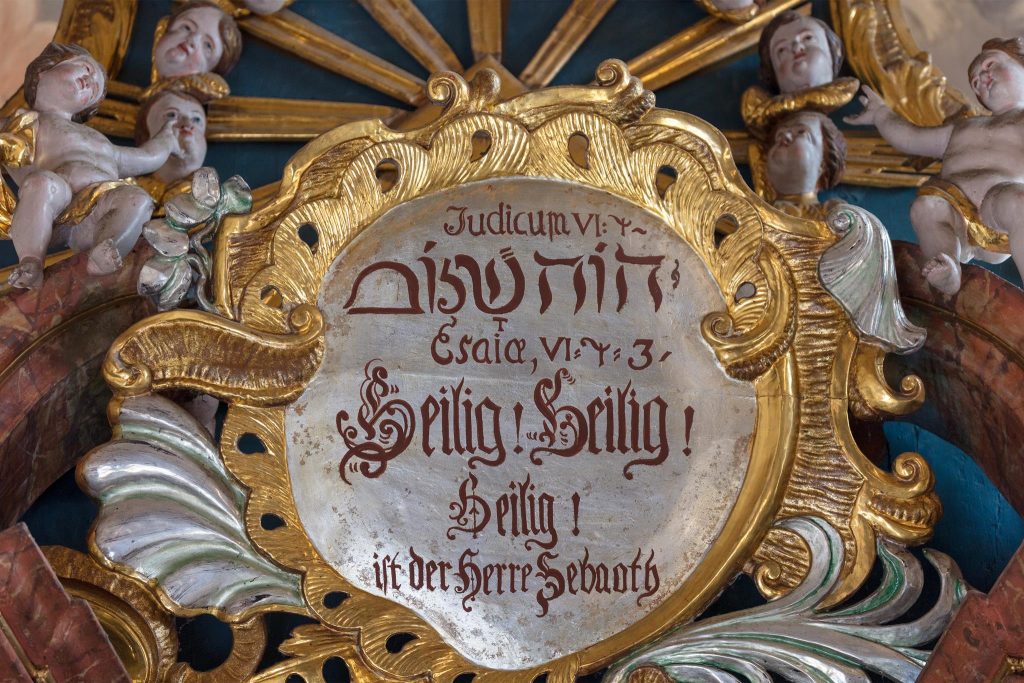 Judicum VI: Ψ~
יהוה שָׁלוֹם
Esaiæ, VI: Ψ: 3
Heilig! Heilig!
Heilig!
ist der Herre Sebaoth